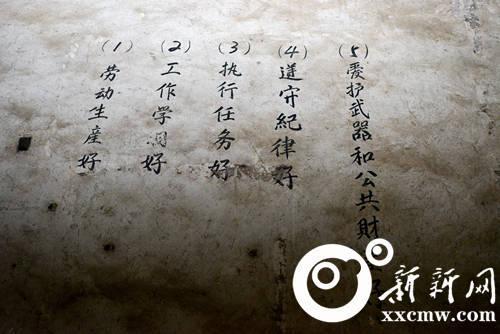 (1) 劳动生産好
(2) 工作学好
(3) 执行任务好
(4) 遵守紀律好
(5) 愛护武器和公共財
新新网
xxcmw.com